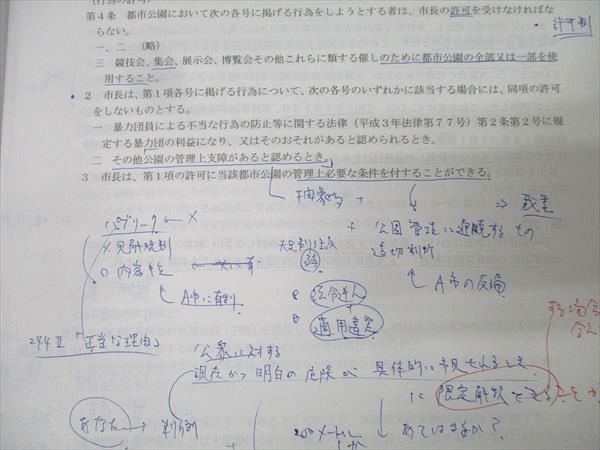 (行為の許可)
第4条 都市公園において次の各号に掲げる行為をしようとする者は、市長の許可を受けなければな
らない。
・許可制
一、二 (略)
三 競技会、集会、展示会、博覧会その他これらに類する催しのために都市公園の全部又は一部を使
用すること。
2 市長は、第1項各号に掲げる行為について、次の各号のいずれかに該当する場合には、同項の許可
をしないものとする。
一 暴力団員による不当な行為の防止等に関する法律(平成3年法律第77号)第2条第2号に規
定する暴力団の利益になり、又はそのおそれがあると認められるとき。
二 その他公園の管理上支障があると認めるとき。
3 市長は、第1項の許可に当該都市公園の管理上必要な条件を付することができる。
抽象的 +
⇒ 裁量
パブリーク ← ×
+ 公園管理に
もの
× 見解規制
適切判断
○ 内容中立
A市に有利
A市の反論
法令違憲
+
適用違憲
244Ⅱ「正当な理由」
公衆に対する
現在かつ明白の危険が 具体的に予見されるとき
に 限定解釈
→ 判例
200メートル
あてはまるか?